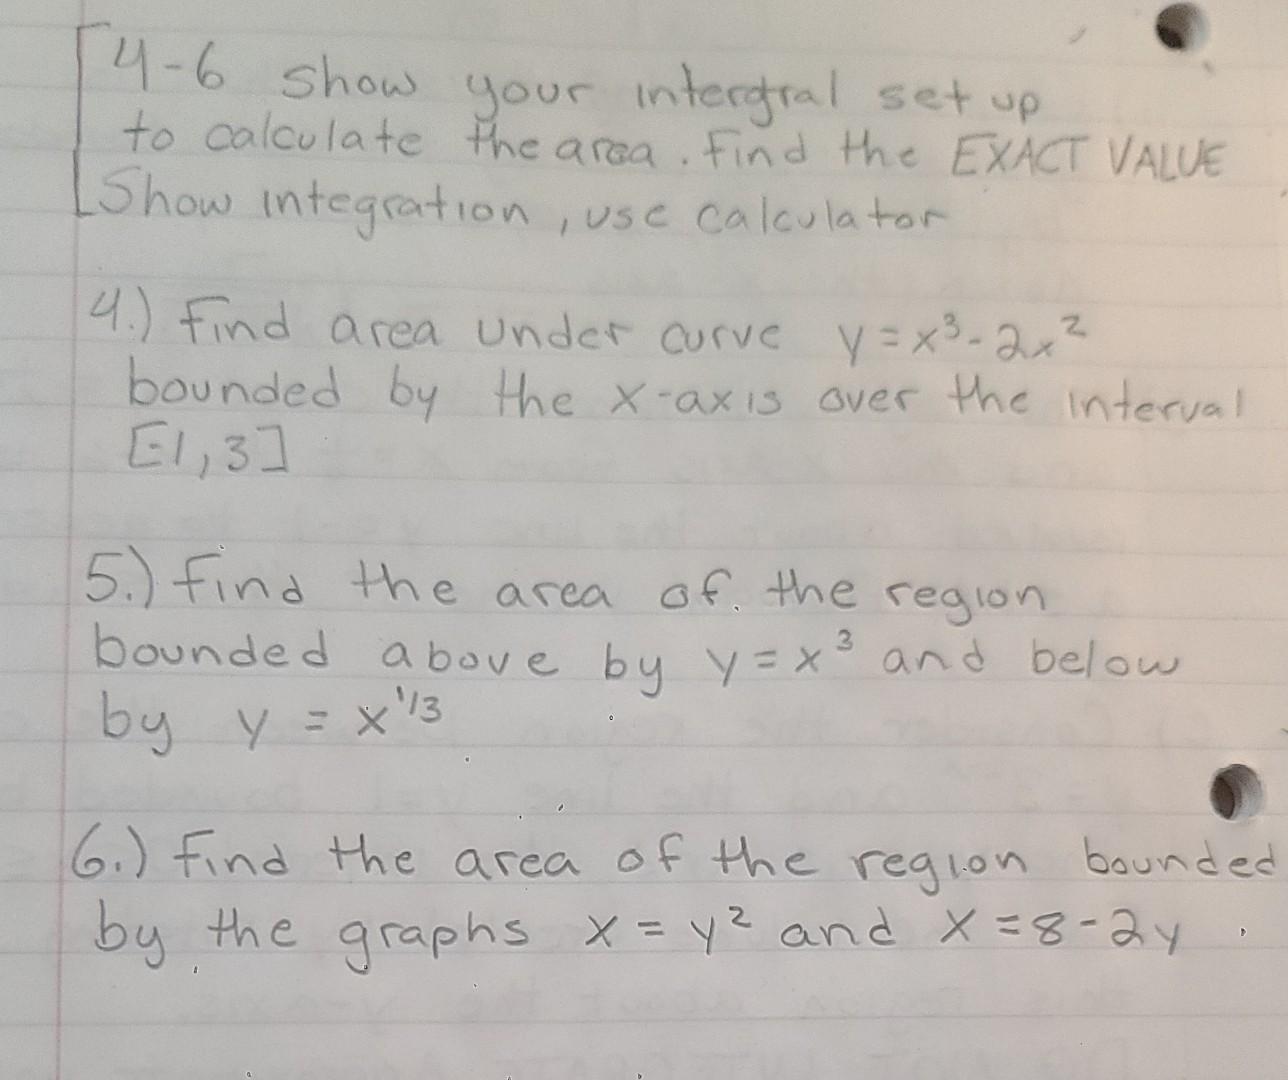 4-6 show your intergral set up
to calculate the area. Find the EXACT VALUE
Show integration, use calculator
4.) Find area under curve y = x³ - 2x²
bounded by the x-axis over the interval
[-1, 3]
5.) Find the area of. the region
bounded above by y = x³ and below
by y = x^1/3
6.) Find the area of the region bounded
by the graphs x = y² and x = 8 - 2y.